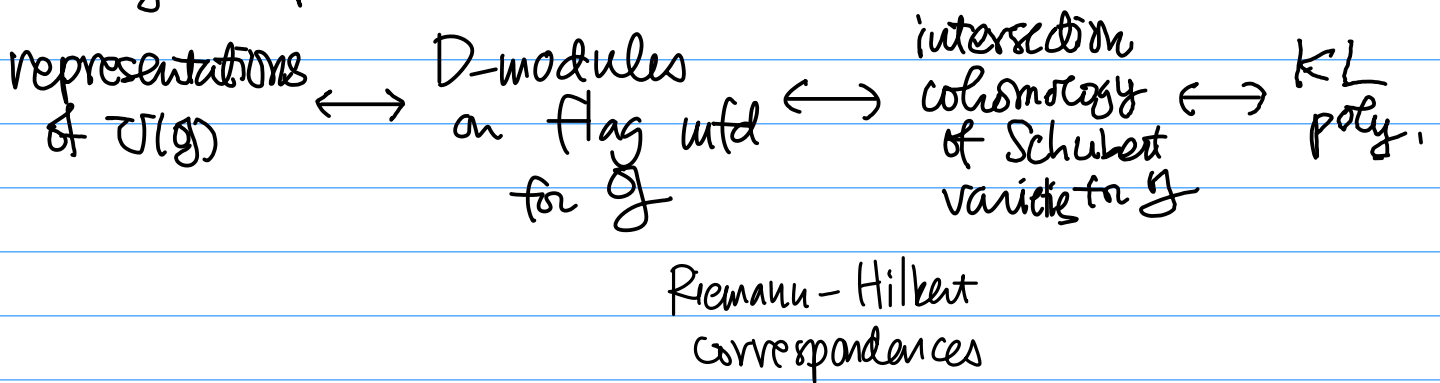 representations of U(g) ↔ D-modules on flag mfd for g ↔ intersection cohomology of Schubert varieties for g ↔ KL poly.
Riemann-Hilbert
correspondences